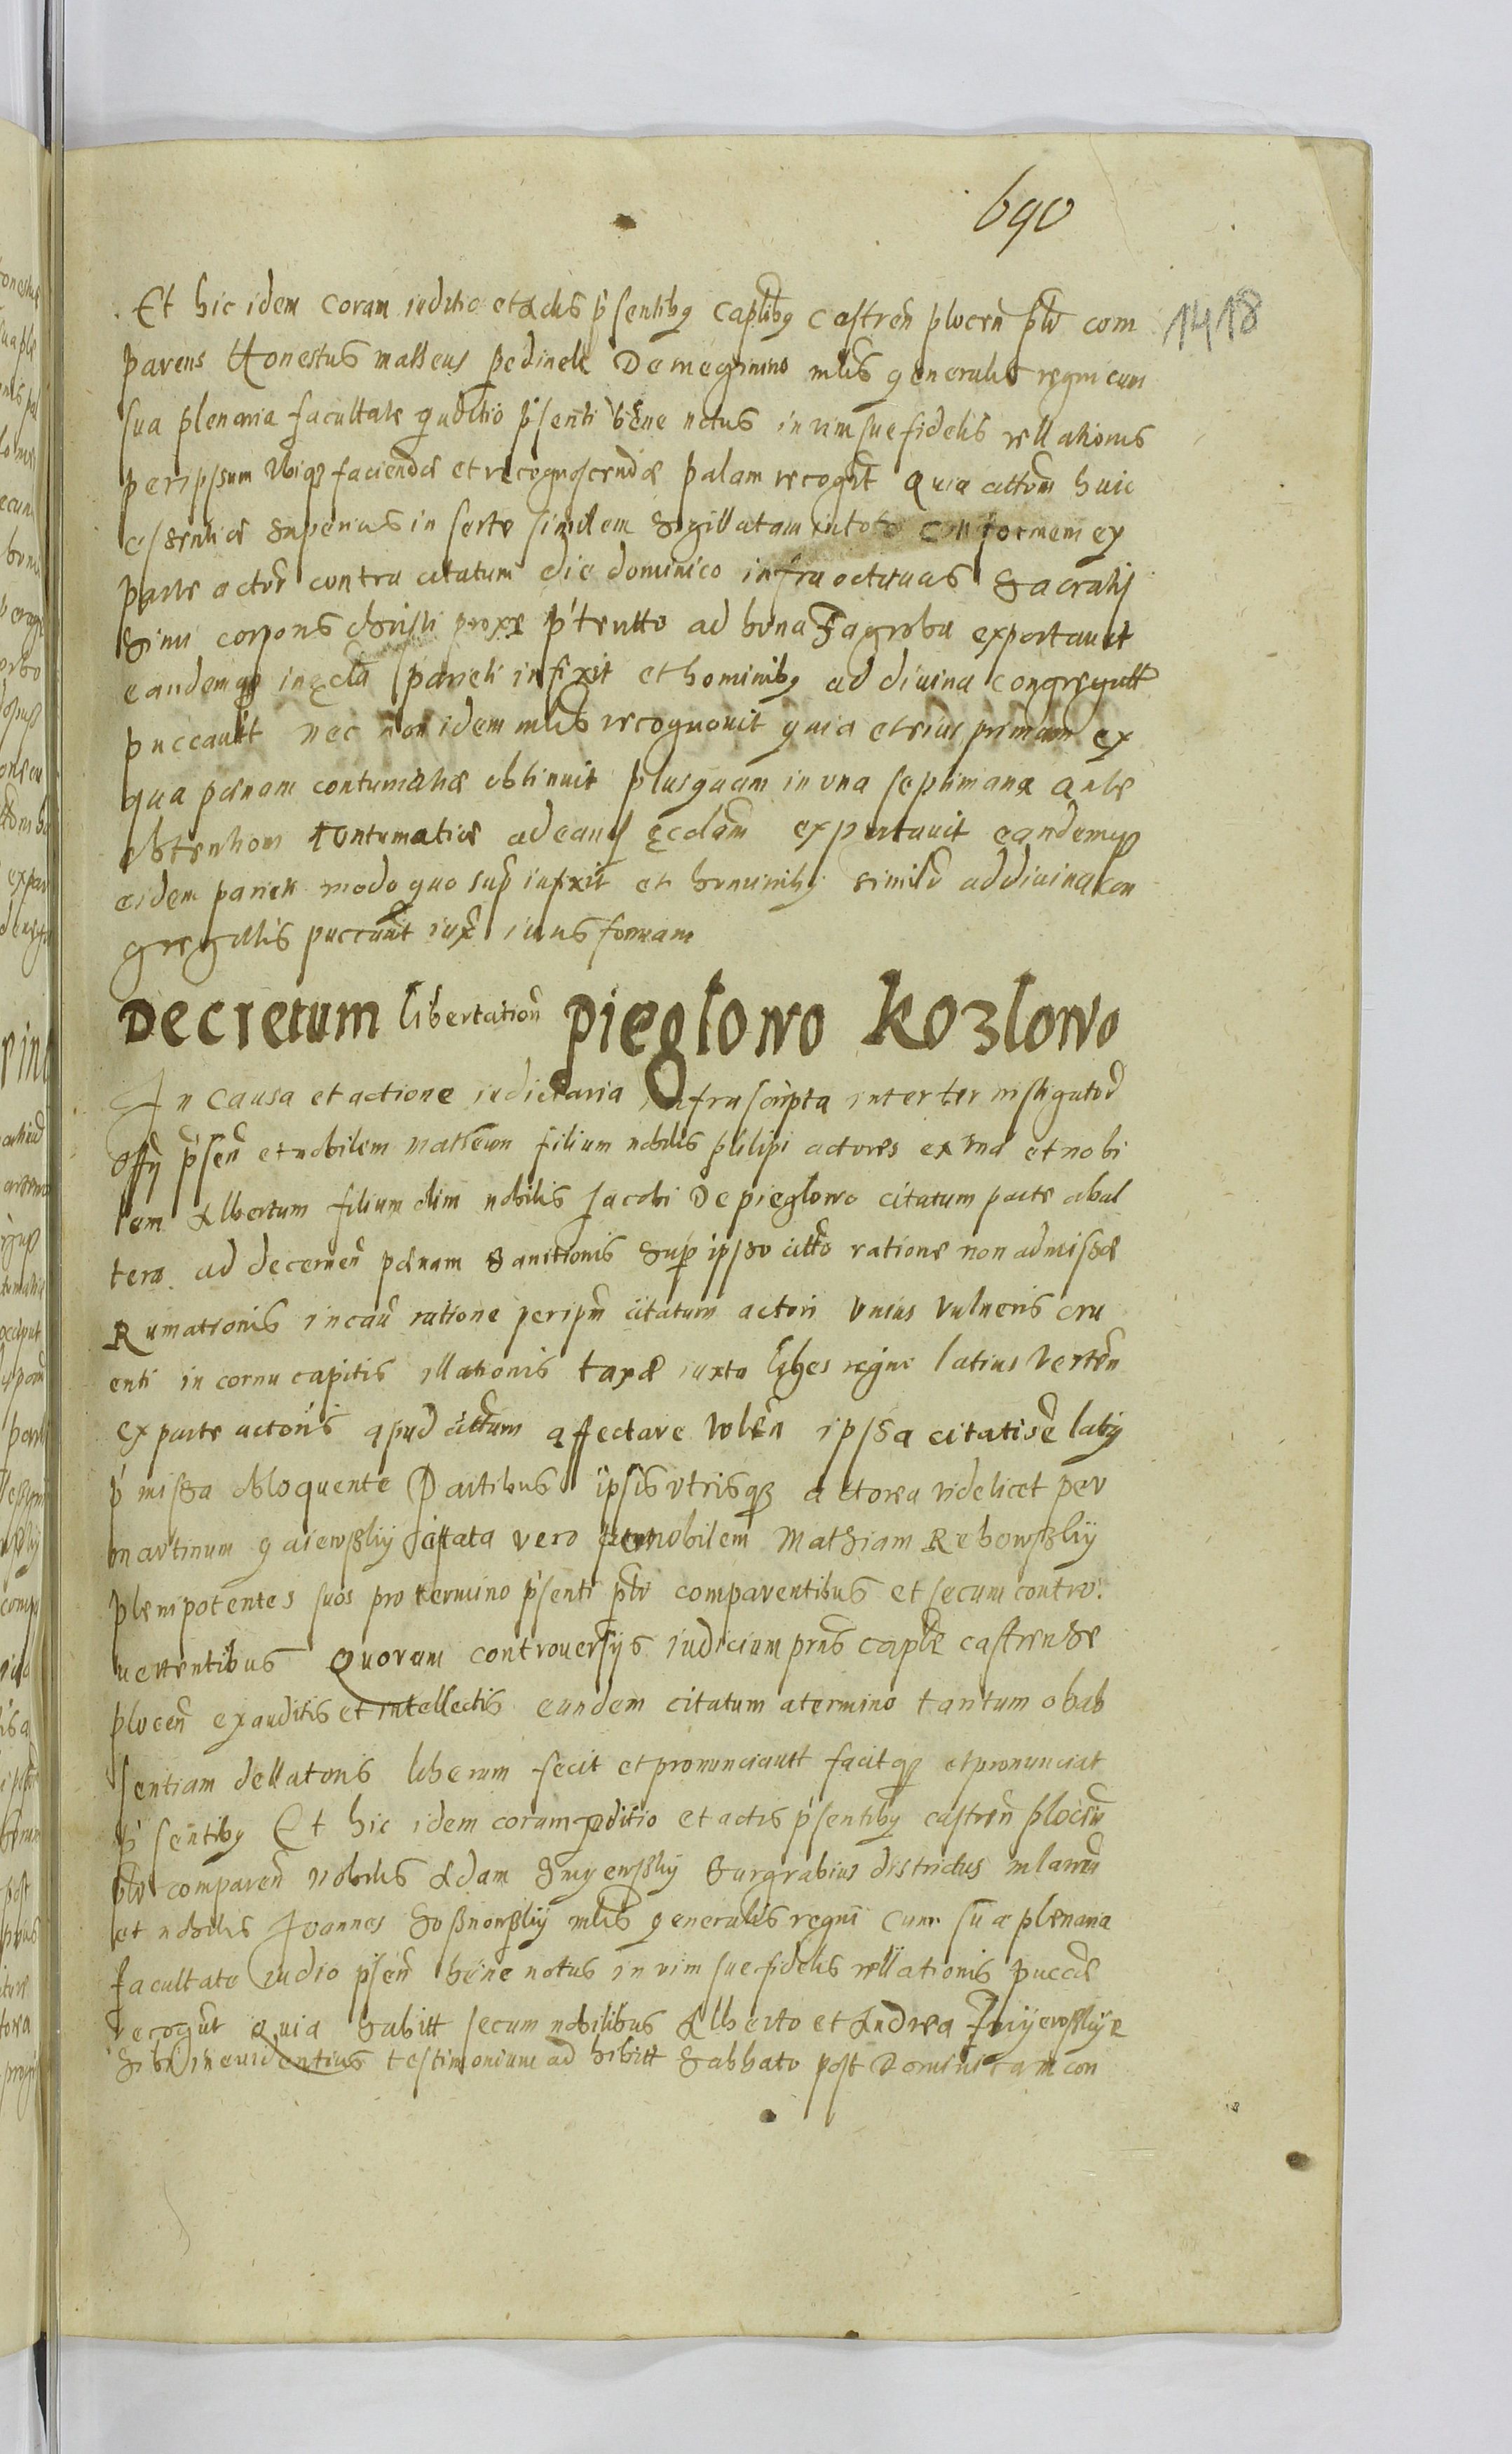 690
1418
Et hic idem coram iuditio et Actis p̃sentibg Captibg Castren̄ plocen̄ ptr com
parens Honestus matheus pedinek De meginino mlis generalis regni cum
sua plenaria facultate Juditio p̃senti bene notus in vim sue fidelis rellationis
per ipsum Ubiqz faciendæ et recognoscendæ palam recogt quia citt̃m huic
essentiæ superius in serte similem Sigillatam in toto conformem ex
parte actor̃ contra citatum die dominico infra octauas Sacratis
Simi corporis christi proxe p̃teritto ad bona Zagroba exportauit
eandemqz in eccla parieti infixit et hominibg ad diuina congregatt
puccauit nec non idem mlis recognouit quia et eius primam ex
qua pænam contumatiæ obtinuit plusquam in una septimana ante
obtention contumatiæ ad eand ecclam exportauit eandemqz
eidem parieti modo quo sup̃ infixit et hominibg similr ad diuina con
gregatis puccauit iux̃ iuris formam
Decretum libertation̄ pieglowo kozlowo
In Causa et actione iudiciaria infra scripta inter ter instigatod
offy p̃sen̄ et nobilem matheum filium nobilis philipi actores ex una et nobi
lem Albertum filium olim nobilis Jacobi De pieglowo citatum parte ab al
tera ad decernen̄ pænam Sanitionis Sup̃ ipso citto ratione non admissæ
Rumationis in cau ratione per ipm̄ citatum actori Unius Vulneris cru
enti in cornu capitis illationis taxæ iuxta leges regni latius Verten̄
ex parte actoris apud citt̃um affectare Volen̄ ipsa citatione latig
p̃missa obloquente Partibus ipsis vtrisqz actorea videlicet per
martinum gaiewsky citata vero per nobilem Mathiam Rebowsky
plenipotentes suos pro termino p̃senti ptr comparentibus et secum contro
uertentibus Quorum controuersys iudicium prns capte castrense
plocen̄ exauditis et intellectis eundem citatum a termino tantum ob ab
sentiam dellatoris liberum fecit et pronunciauit facitqz et pronunciat
p̃sentibg Et hic idem coram Juditio et actis p̃sentibg castren̄ plocen̄
ptr comparen̄ nobilis Adam Smyewsky Surgrabius districtus mlauen̄
et nobilis Joannes Sosnowsky mlis generalis regni cum sua plenaria
facultate iudio p̃sen̄ bene notus in vim sue fidelis rellationis puccæ
recogut quia habitt secum nobilibus Alberto et Andrea
Sibi in euidentius testimonium ad hibitt Sabbato post Dominicam con